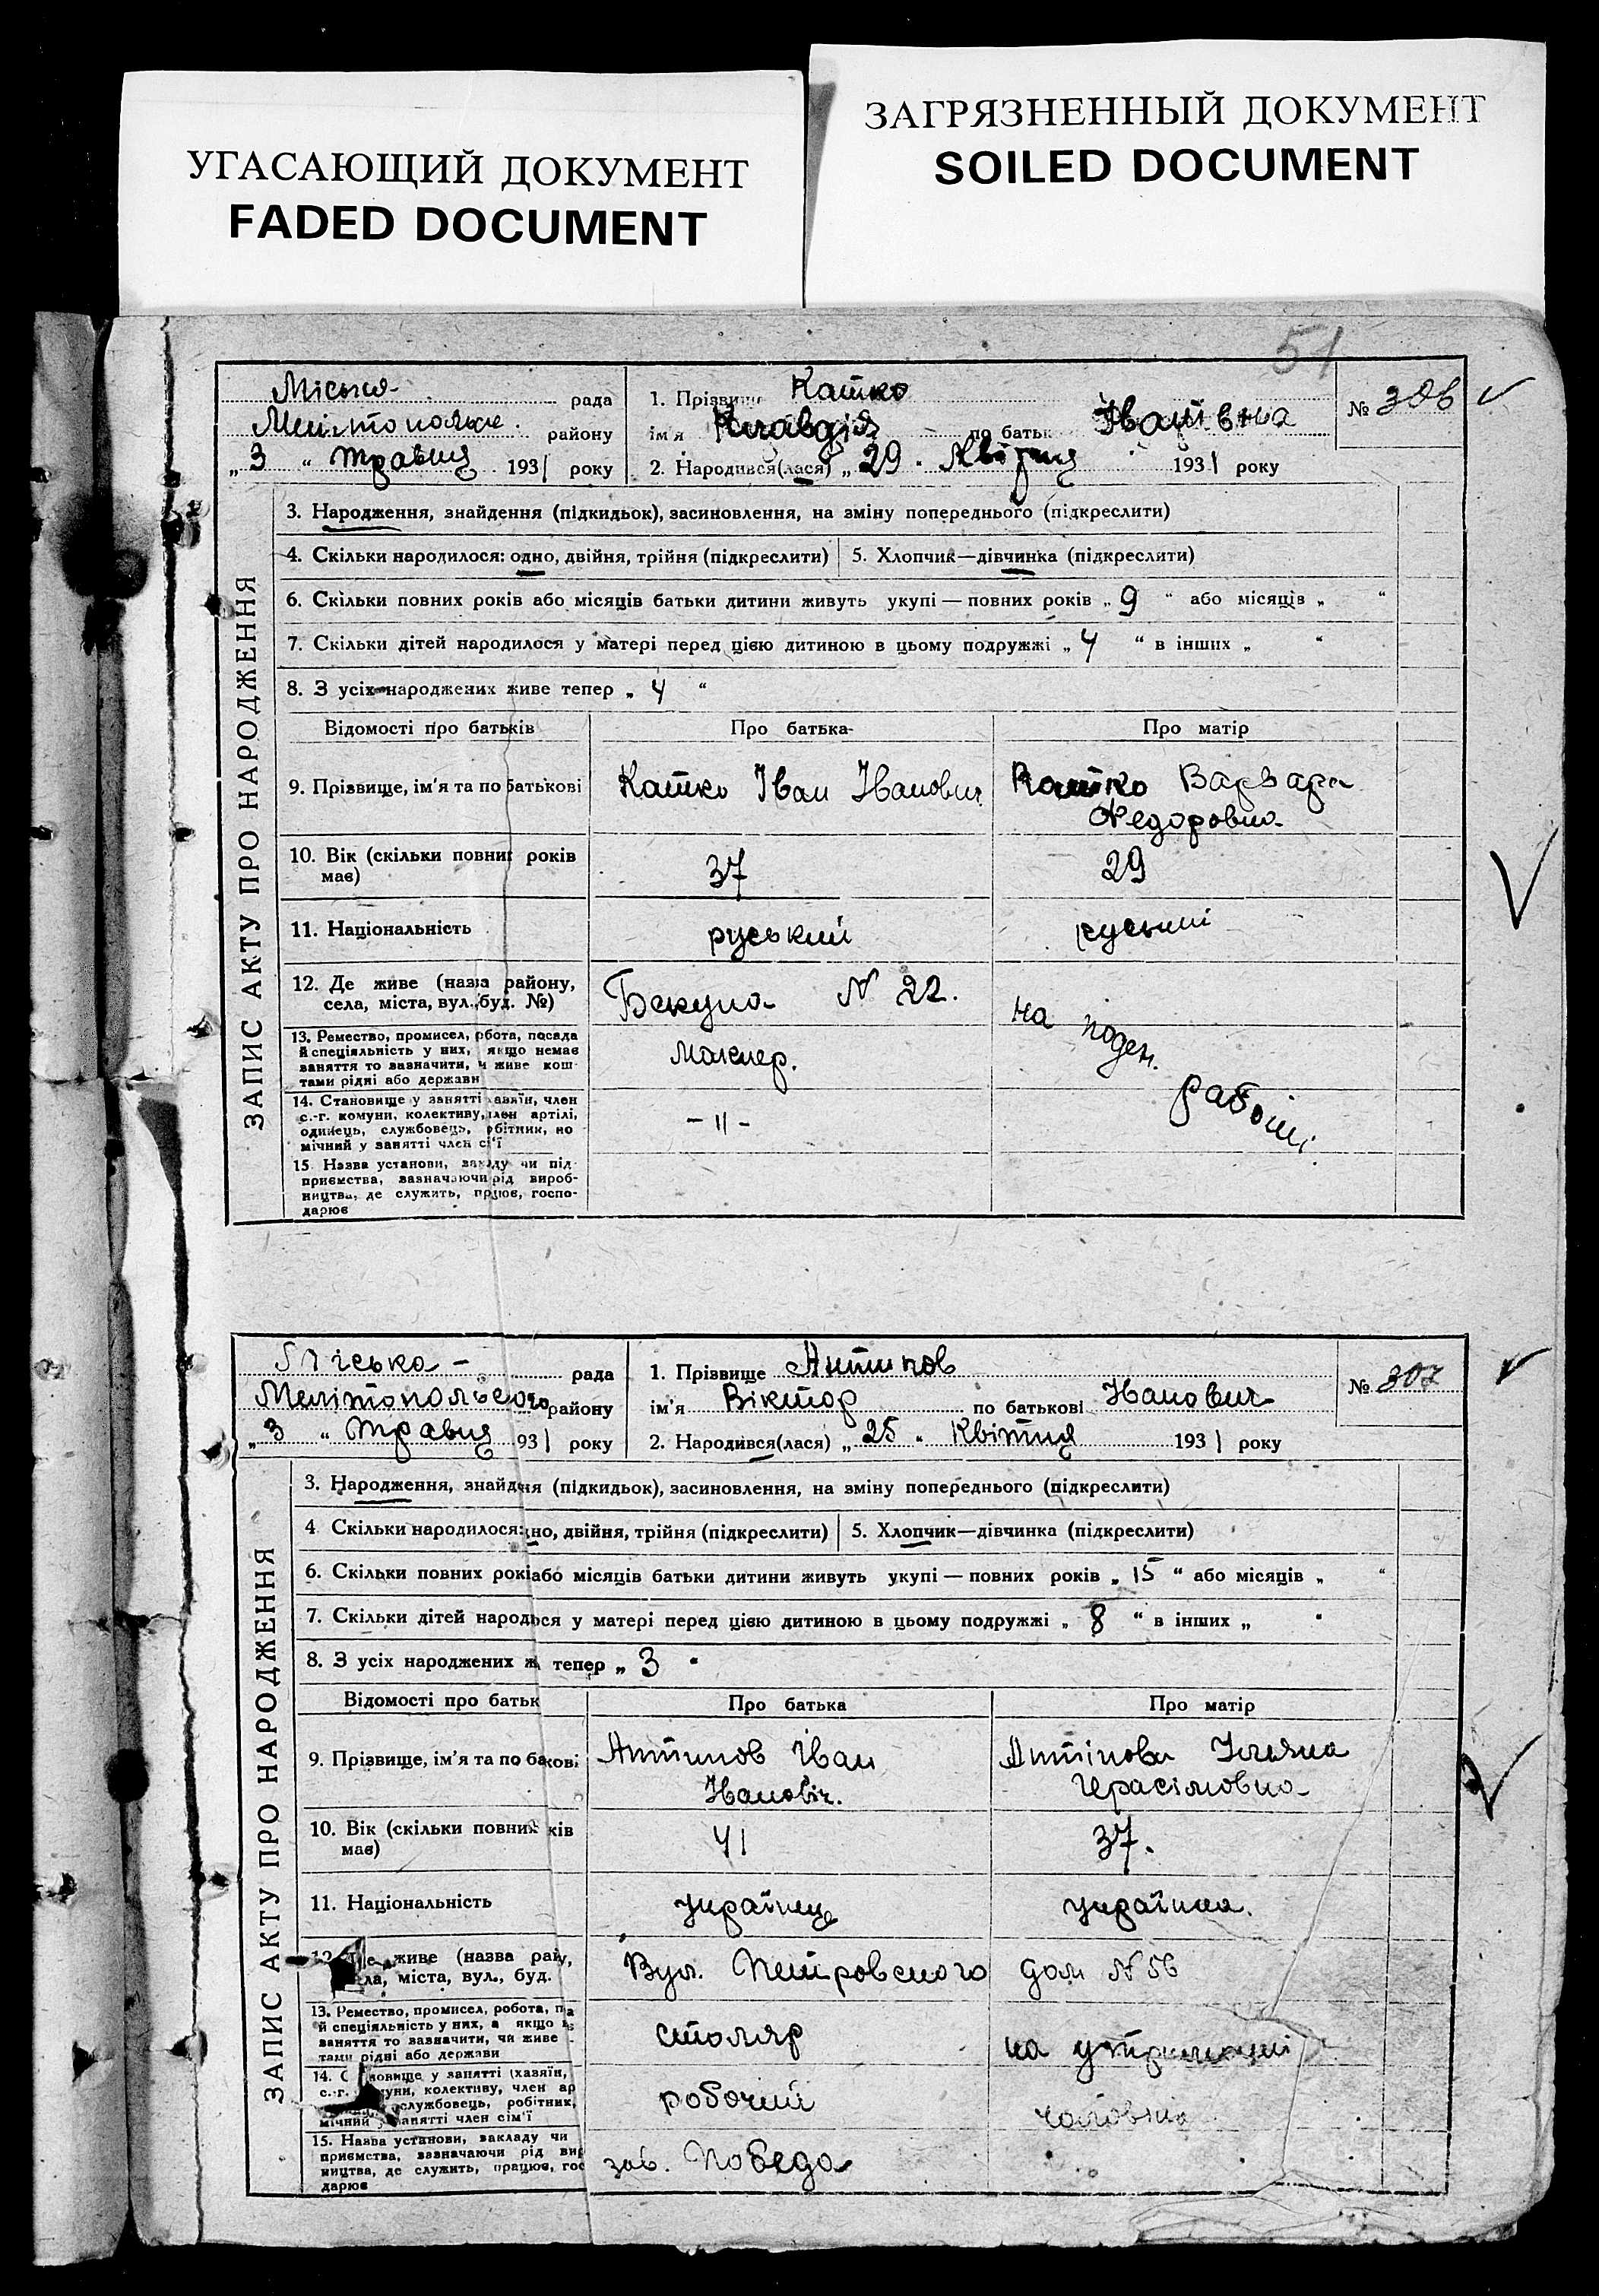 УГАСАЮЩИЙ ДОКУМЕНТ
FADED DOCUMENT
ЗАГРЯЗНЕННЫЙ ДОКУМЕНТ
SOILED DOCUMENT
51
Міська рада
району
„ 3 “ травня 1931 року
1. Прізвище Катко
ім'я Клавдія по батьк Іванівна
2. Народився(лася) „ 29 “ Квітня 1931 року
№ 306
ЗАПИС АКТУ ПРО НАРОДЖЕННЯ
3. Народження, знайдення (підкидьок), засиновлення, на зміну попереднього (підкреслити)
4. Скільки народилося: одно, двійня, трійня (підкреслити) 5. Хлопчик—дівчинка (підкреслити)
6. Скільки повних років або місяців батьки дитини живуть укупі — повних років „ 9 “ або місяців „ “
7. Скільки дітей народилося у матері перед цією дитиною в цьому подружжі „ 4 “ в інших „ “
8. З усіх народжених живе тепер „ 4 “
Відомості про батьків Про батька Про матір
9. Прізвище, ім'я та по батькові Катко Іван Іванович Катко Варвара
Федоровна
10. Вік (скільки повних років
має) 37 29
11. Національність руський
12. Де живе (назва району,
села, міста, вул., буд. №) N 22.
13. Ремество, промисел, робота, посада
й спеціяльність у них, якщо немає
заняття то зазначити, чи живе кош-
тами рідні або держави
Маклер. на поден. работі
14. Становище у занятті хазяїн, член
с.-г. комуни, колективу, член артілі,
одинець, службовець, робітник, по
мічний у занятті член сім'ї
- 11 -
15 Назва установи, закладу чи під-
приємства, зазначаючи рід вироб-
ництва, де служить, працює, госпо-
дарює
Міська - рада
Мелітопольского району
„ 3 “ травня 931 року
1. Прізвище Антипов
ім'я Віктор по батькові Іванович
2. Народився(лася) „ 25 “ Квітня 1931 року
№ 307
ЗАПИС АКТУ ПРО НАРОДЖЕННЯ
3. Народження, знайдення (підкидьок), засиновлення, на зміну попереднього (підкреслити)
4 Скільки народилося: но, двійня, трійня (підкреслити) 5. Хлопчик—дівчинка (підкреслити)
6. Скільки повних рокі або місяців батьки дитини живуть укупі — повних років „ 15 “ або місяців „ “
7. Скільки дітей народ ся у матері перед цією дитиною в цьому подружжі „ 8 “ в інших „ “
8. З усіх народжених ж тепер „ 3 “
Відомості про батьк Про батька Про матір
9. Прізвище, ім'я та по ба кові Антипов Іван Антіпова
Івановіч. Герасімовна
10. Вік (скільки повних ків
має) 41 37.
11. Національність українец українка.
12 Де живе (назва рай,
ла, міста, вул., буд. Вул. Петровского дом N 56
13. Ремество, промисел, робота, па
й спеціяльність у них, а якщо
заняття то зазначити, чи живе
тами рідні або держави
столяр на утриманні
14. С новище у занятті (хазяїн,
с.-г. комуни, колективу, член ар
службовець, робітник,
мічний у занятті член сім'ї
робочий чоловіка
15. Назва установи, закладу чи
приємства, зазначаючи рід вир
ництва, де служить, працює, гос
дарює
зав. Победа